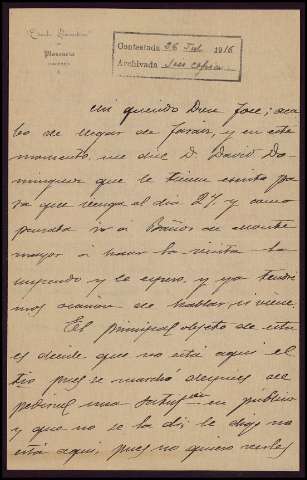 Plasencia
Contestada 26 Feb 1916
Archivada
Mi querido Don José: aca-
bo de llegar de Jaraiz, y en este
momento, me dice D. David Do-
minguez que le tiene escrito pa-
ra que venga el dia 27 y como
pensaba ir a Baños de Monte
mayor á hacer la visita la
suspendo y le espero, y ya tendre-
mos ocasión de hablar, si viene.
El principal objeto de esta
es decirle que no está aqui el
tio pues se marchó despues de
pedirme una en público
y que no se la di le digo no
está aqui, pues no quiero